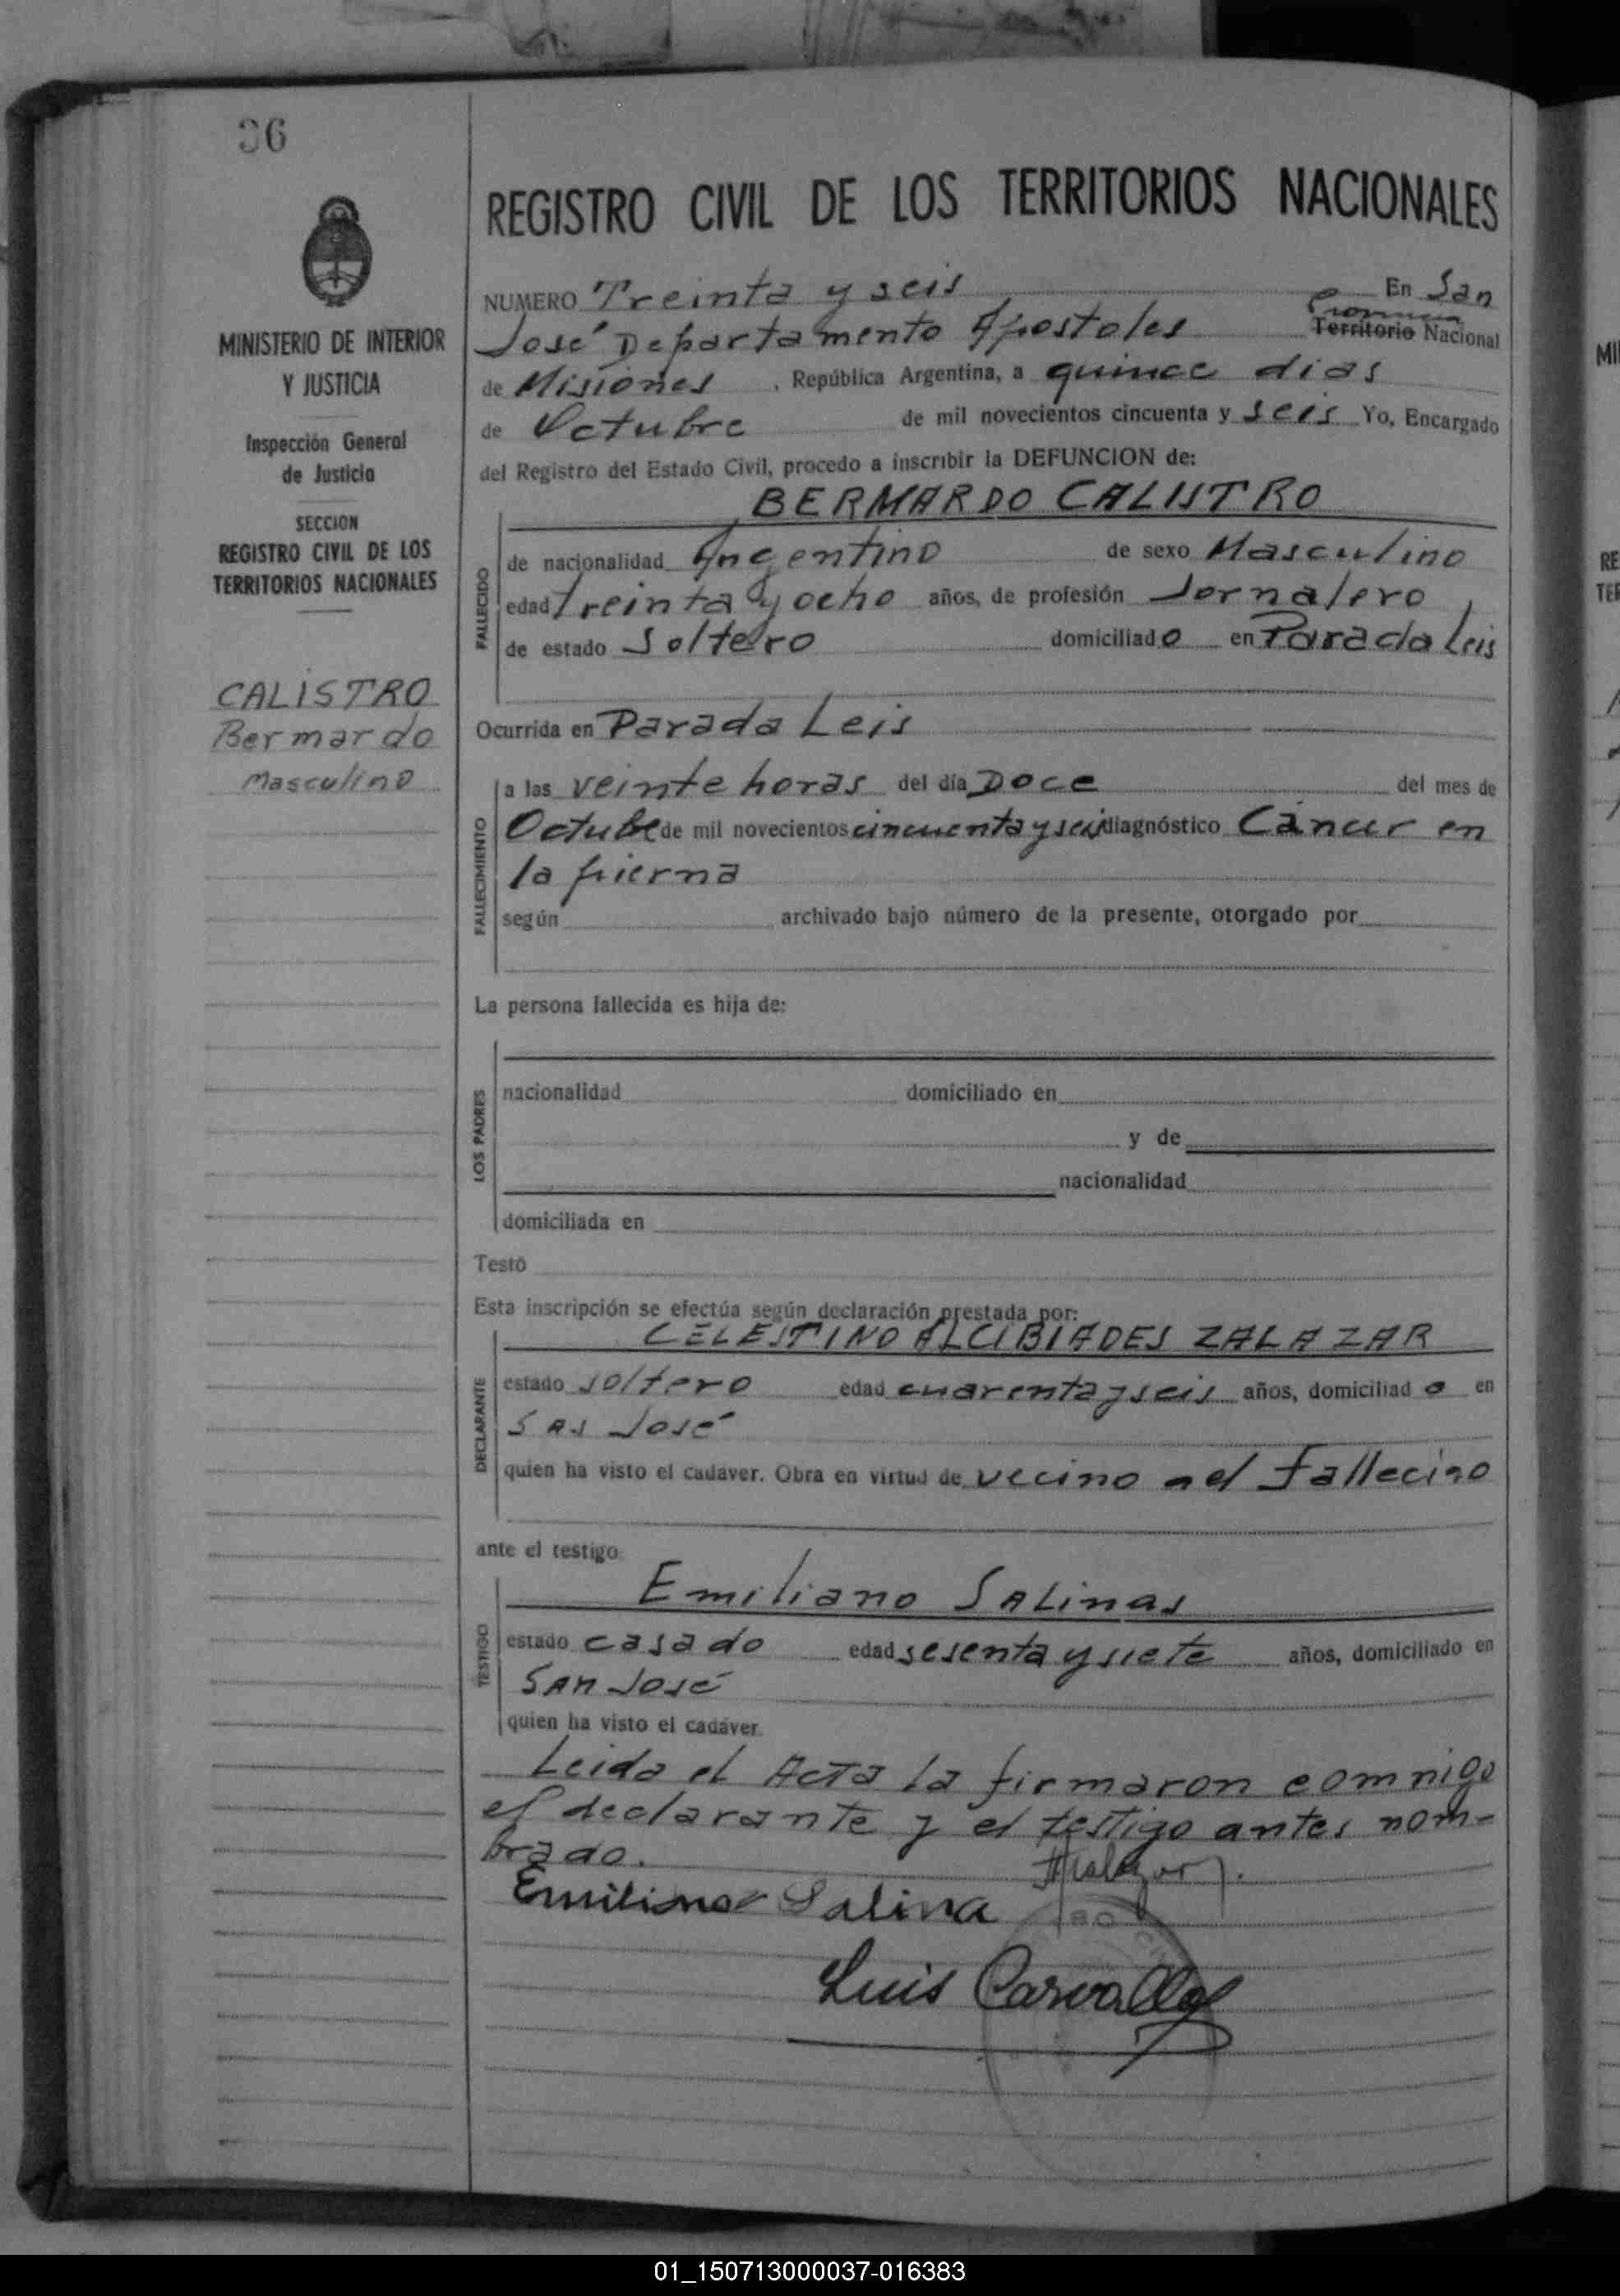 36
REGISTRO CIVIL DE LOS TERRITORIOS NACIONALES
MINISTERIO DE INTERIOR
Y JUSTICIA
Inspección General
de Justicia
SECCION
REGISTRO CIVIL DE LOS
TERRITORIOS NACIONALES
CALISTRO
Bermardo
Masculino
NUMERO Treinta y seis En San
Provincia
José Departamento Apostoles Territorio Nacional
de Misiones, República Argentina, a quince dias
de Octubre de mil novecientos cincuenta y seis Yo, Encargado
del Registro del Estado Civil, procedo a inscribir la DEFUNCION de:
BERMARDO CALISTRO
FALLECIDO
de nacionalidad Argentino de sexo Masculino
edad treinta y ocho años, de profesión Jornalero,
de estado Soltero domiciliado en Parada Leis
Ocurrida en Parada Leis
FALLECIMIENTO
a las veinte horas del día Doce del mes de
Octube de mil novecientos cincuenta y seis diagnóstico Cáncer en
la pierna
según archivado bajo número de la presente, otorgado por
La persona fallecida es hija de:
LOS PADRES
nacionalidad domiciliado en
y de
nacionalidad
domiciliada en
Testó
Esta inscripción se efectúa según declaración prestada por:
CELESTINO ALCIBIADES ZALAZAR
DECLARANTE
estado soltero edad cuarenta y seis años, domiciliado en
San José
quien ha visto el cadaver. Obra en virtud de vecino del fallecido
ante el testigo
Emiliano SALinas
TESTIGO
estado casado edad sesenta y siete años, domiciliado en
SAn José
quien ha visto el cadáver.
Leida el Acta la firmaron comnigo
el declarante y el testigo antes nom-
brado.
Emiliano Salina
Luis Carvallo
01_150713000037-016383